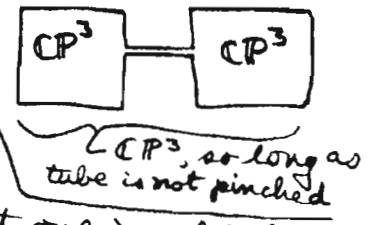 ℂℙ³ ℂℙ³
ℂℙ³, so long as
tube is not pinched